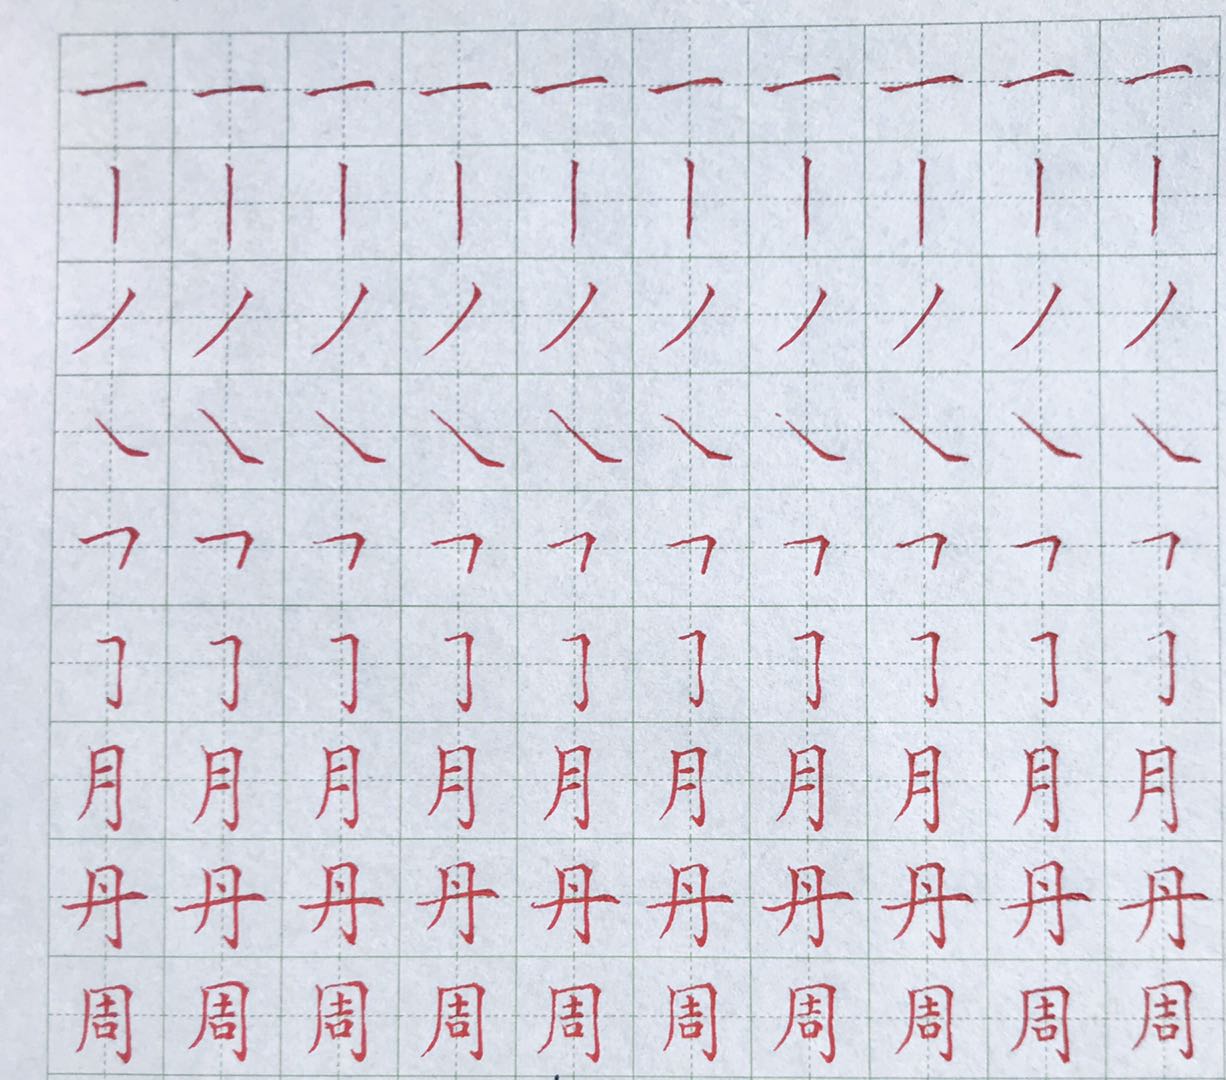 一一一一一一一一一一
丨丨丨丨丨丨丨丨丨丨
丿丿丿丿丿丿丿丿丿丿
㇏㇏㇏㇏㇏㇏㇏㇏㇏㇏
㇇㇇㇇㇇㇇㇇㇇㇇㇇㇇
㇆㇆㇆㇆㇆㇆㇆㇆㇆㇆
月月月月月月月月月月
丹丹丹丹丹丹丹丹丹丹
周周周周周周周周周周